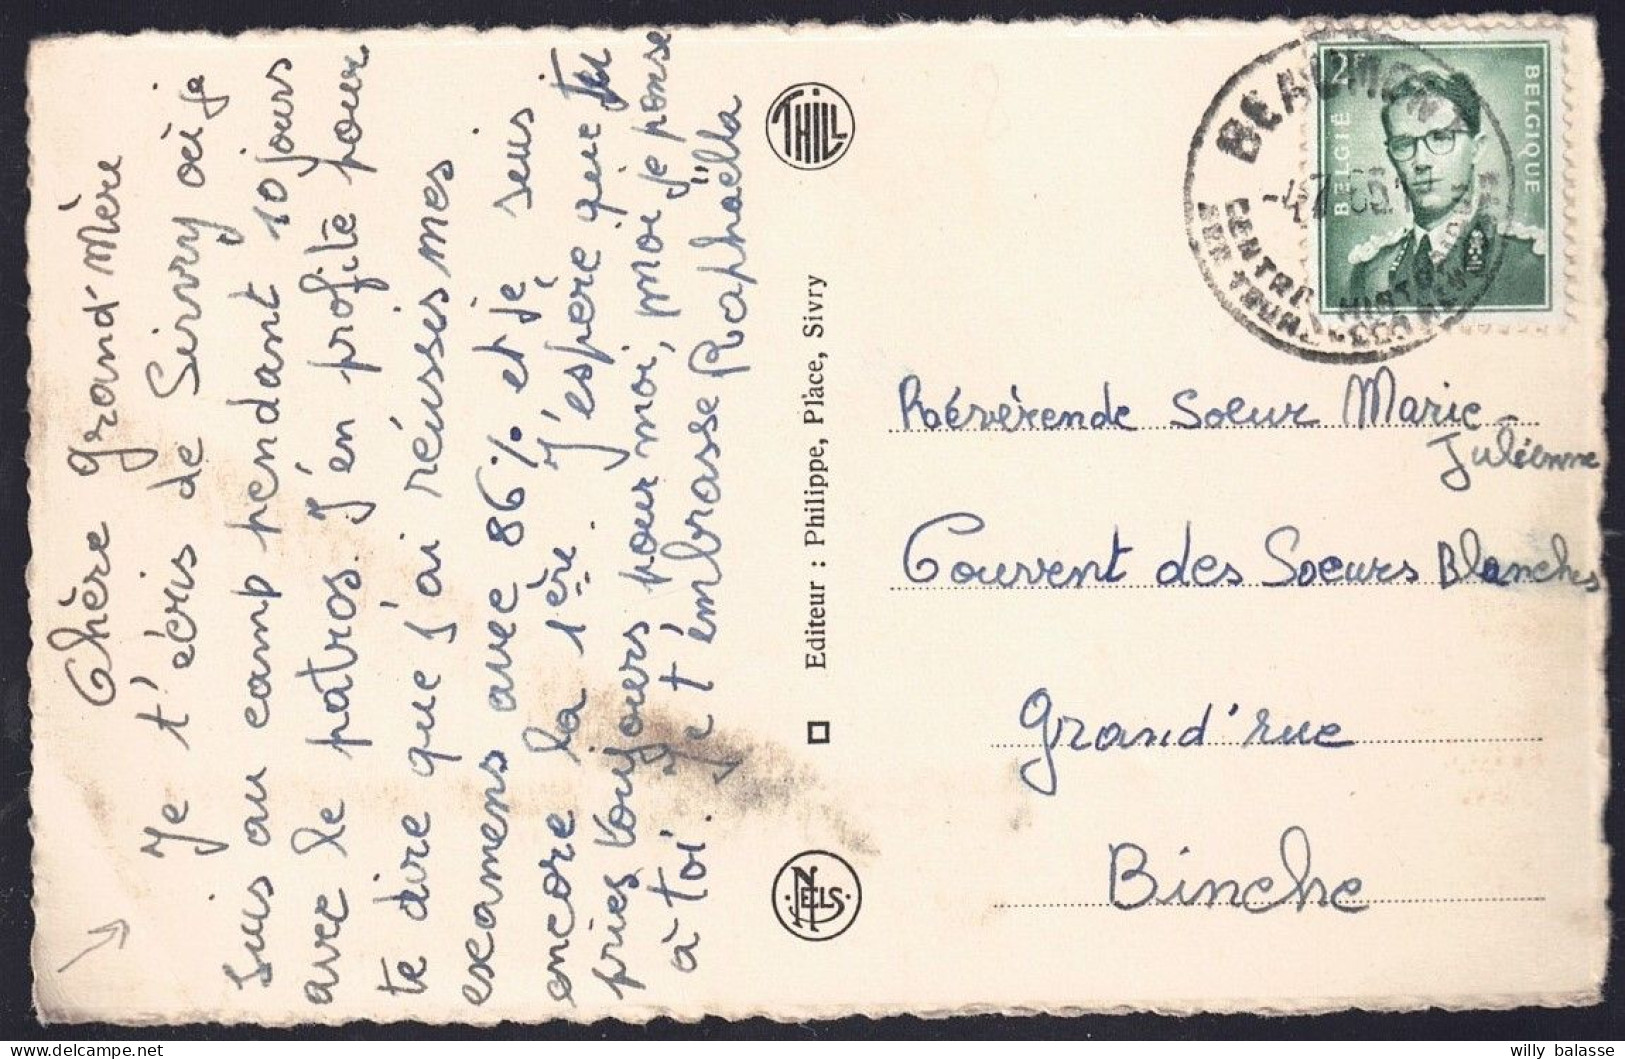 Chère Grand'Mère
Je t'écris de Sivry où je
suis au camp pendant 10 jours
avec le patros. J'en profite pour
te dire que j'ai réussis mes
examens avec 86% et je suis
encore la 1ère. J'espère que tu
pries toujours pour moi, moi je pense
à toi. Je t'embrasse Raphaëlla
THILL
Editeur : Philippe, Place, Sivry
NELS
2F
BELGIË
BELGIQUE
BEAUMON
CENTRE HISTORIQUE
Réévérende Soeur Marie-
Juliénne
Couvent des Soeurs Blanches
Grand'rue
Binche
willy balasse